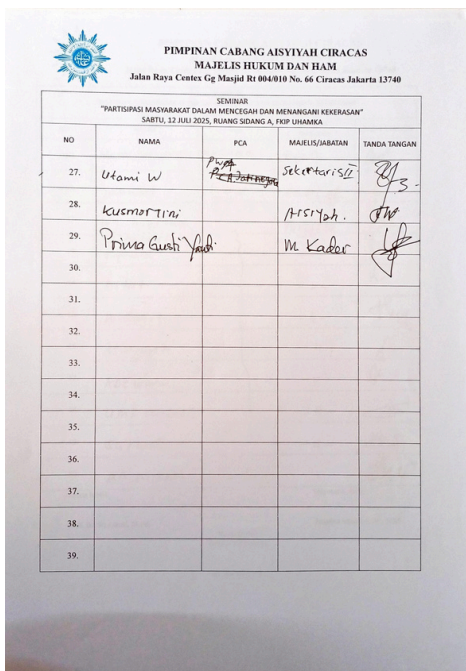 PIMPINAN CABANG AISYIYAH CIRACAS
MAJELIS HUKUM DAN HAM
Jalan Raya Centex Gg Masjid Rt 004/010 No. 66 Ciracas Jakarta 13740
SEMINAR
"PARTISIPASI MASYARAKAT DALAM MENCEGAH DAN MENANGANI KEKERASAN"
SABTU, 12 JULI 2025, RUANG SIDANG A, FKIP UHAMKA
NO NAMA PCA MAJELIS/JABATAN TANDA TANGAN
27. Utami W PWA Sekertaris II
28. Kusmartini Aisiyah.
29. Prima Gusti Yanti M Kader
30.
31.
32.
33.
34.
35.
36.
37.
38.
39.